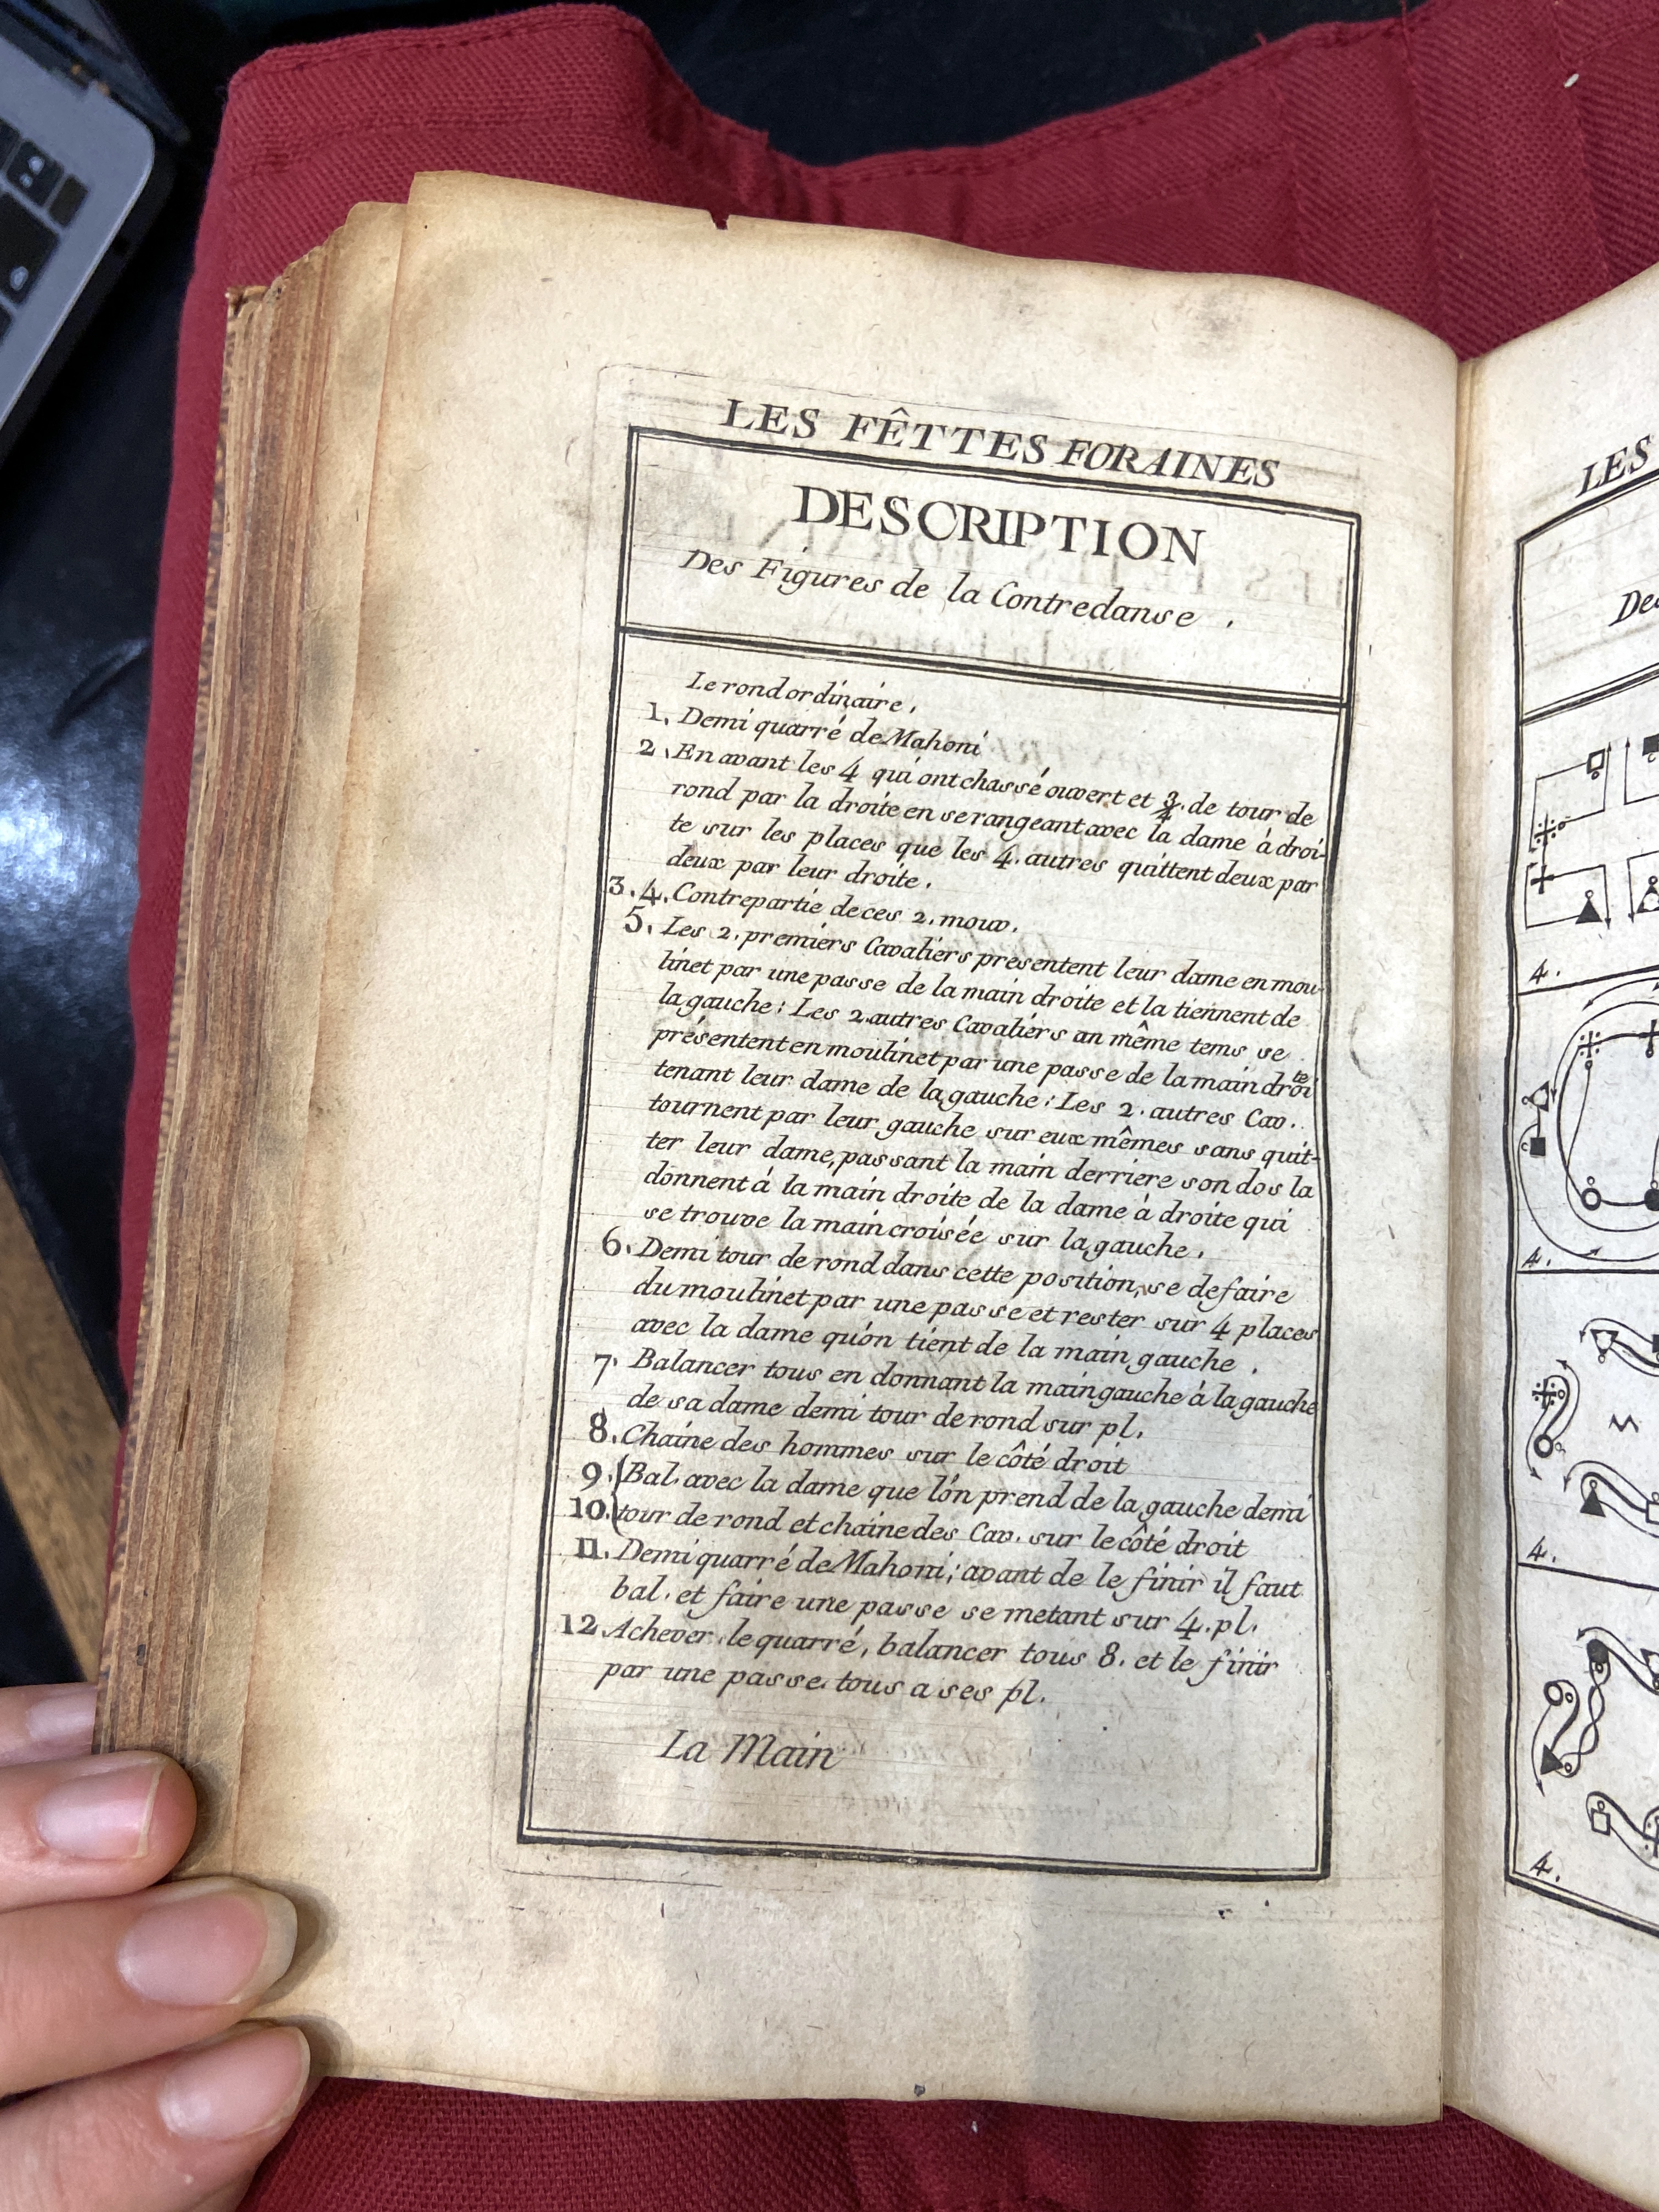 LES FÊTTES FORAINES
DESCRIPTION
Des Figures de la Contredanse.
Le rond ordinaire.
1. Demi quarré de Mahoni
2. En avant les 4 qui ont chassé ouvert et 3/4. de tour de
rond par la droite en se rangeant avec la dame à droi-
te sur les places que les 4. autres quittent deux par
deux par leur droite.
3. 4. Contrepartie de ces 2. mouv.
5. Les 2. premiers Cavaliers presentent leur dame en mou-
linet par une passe de la main droite et la tiennent de
la gauche: Les 2. autres Cavaliers an même tems se
présentent en moulinet par une passe de la main droite
tenant leur dame de la gauche: Les 2. autres Cav.
tournent par leur gauche sur eux mêmes sans quit-
ter leur dame, passant la main derriere son dos la
donnent à la main droite de la dame à droite qui
se trouve la main croisée sur la gauche.
6. Demi tour de rond dans cette position, se defaire
du moulinet par une passe et rester sur 4 places
avec la dame qu'on tient de la main gauche.
7. Balancer tous en donnant la main gauche à la gauche
de sa dame demi tour de rond sur pl.
8. Chaine des hommes sur le côté droit
9. (Bal. avec la dame que l'on prend de la gauche demi
10. (tour de rond et chaine des Cav. sur le côté droit
11. Demi quarré de Mahoni; avant de le finir il faut
bal. et faire une passe se metant sur 4. pl.
12. Achever le quarré, balancer tous 8. et le finir
par une passe tous a ses pl.
La Main
LES
De
4.
4.
4.
4.